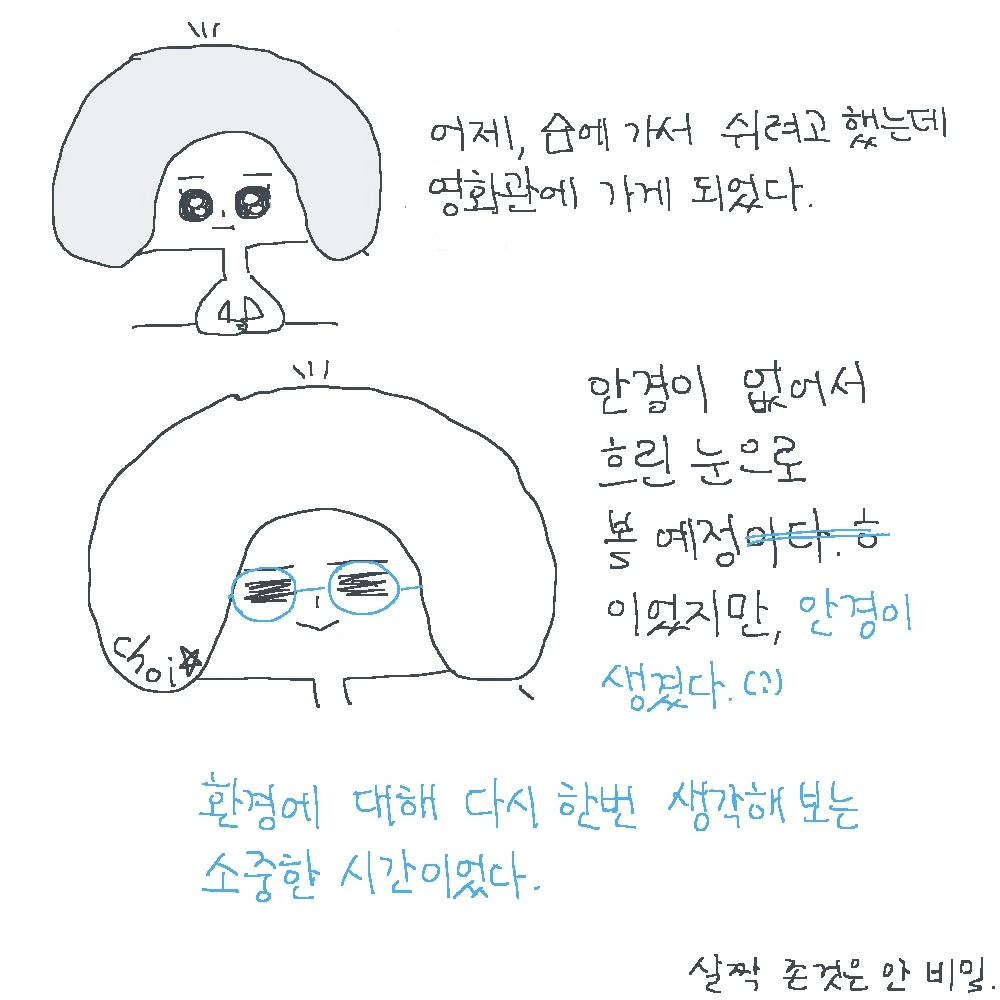 어제, 숍에 가서 쉬려고 했는데
영화관에 가게 되었다.
안경이 없어서
흐린 눈으로
볼 예정이다. ㅎ
이었지만, 안경이
생겼다.(?)
choi☆
환경에 대해 다시 한번 생각해 보는
소중한 시간이었다.
살짝 존것은 안 비밀.